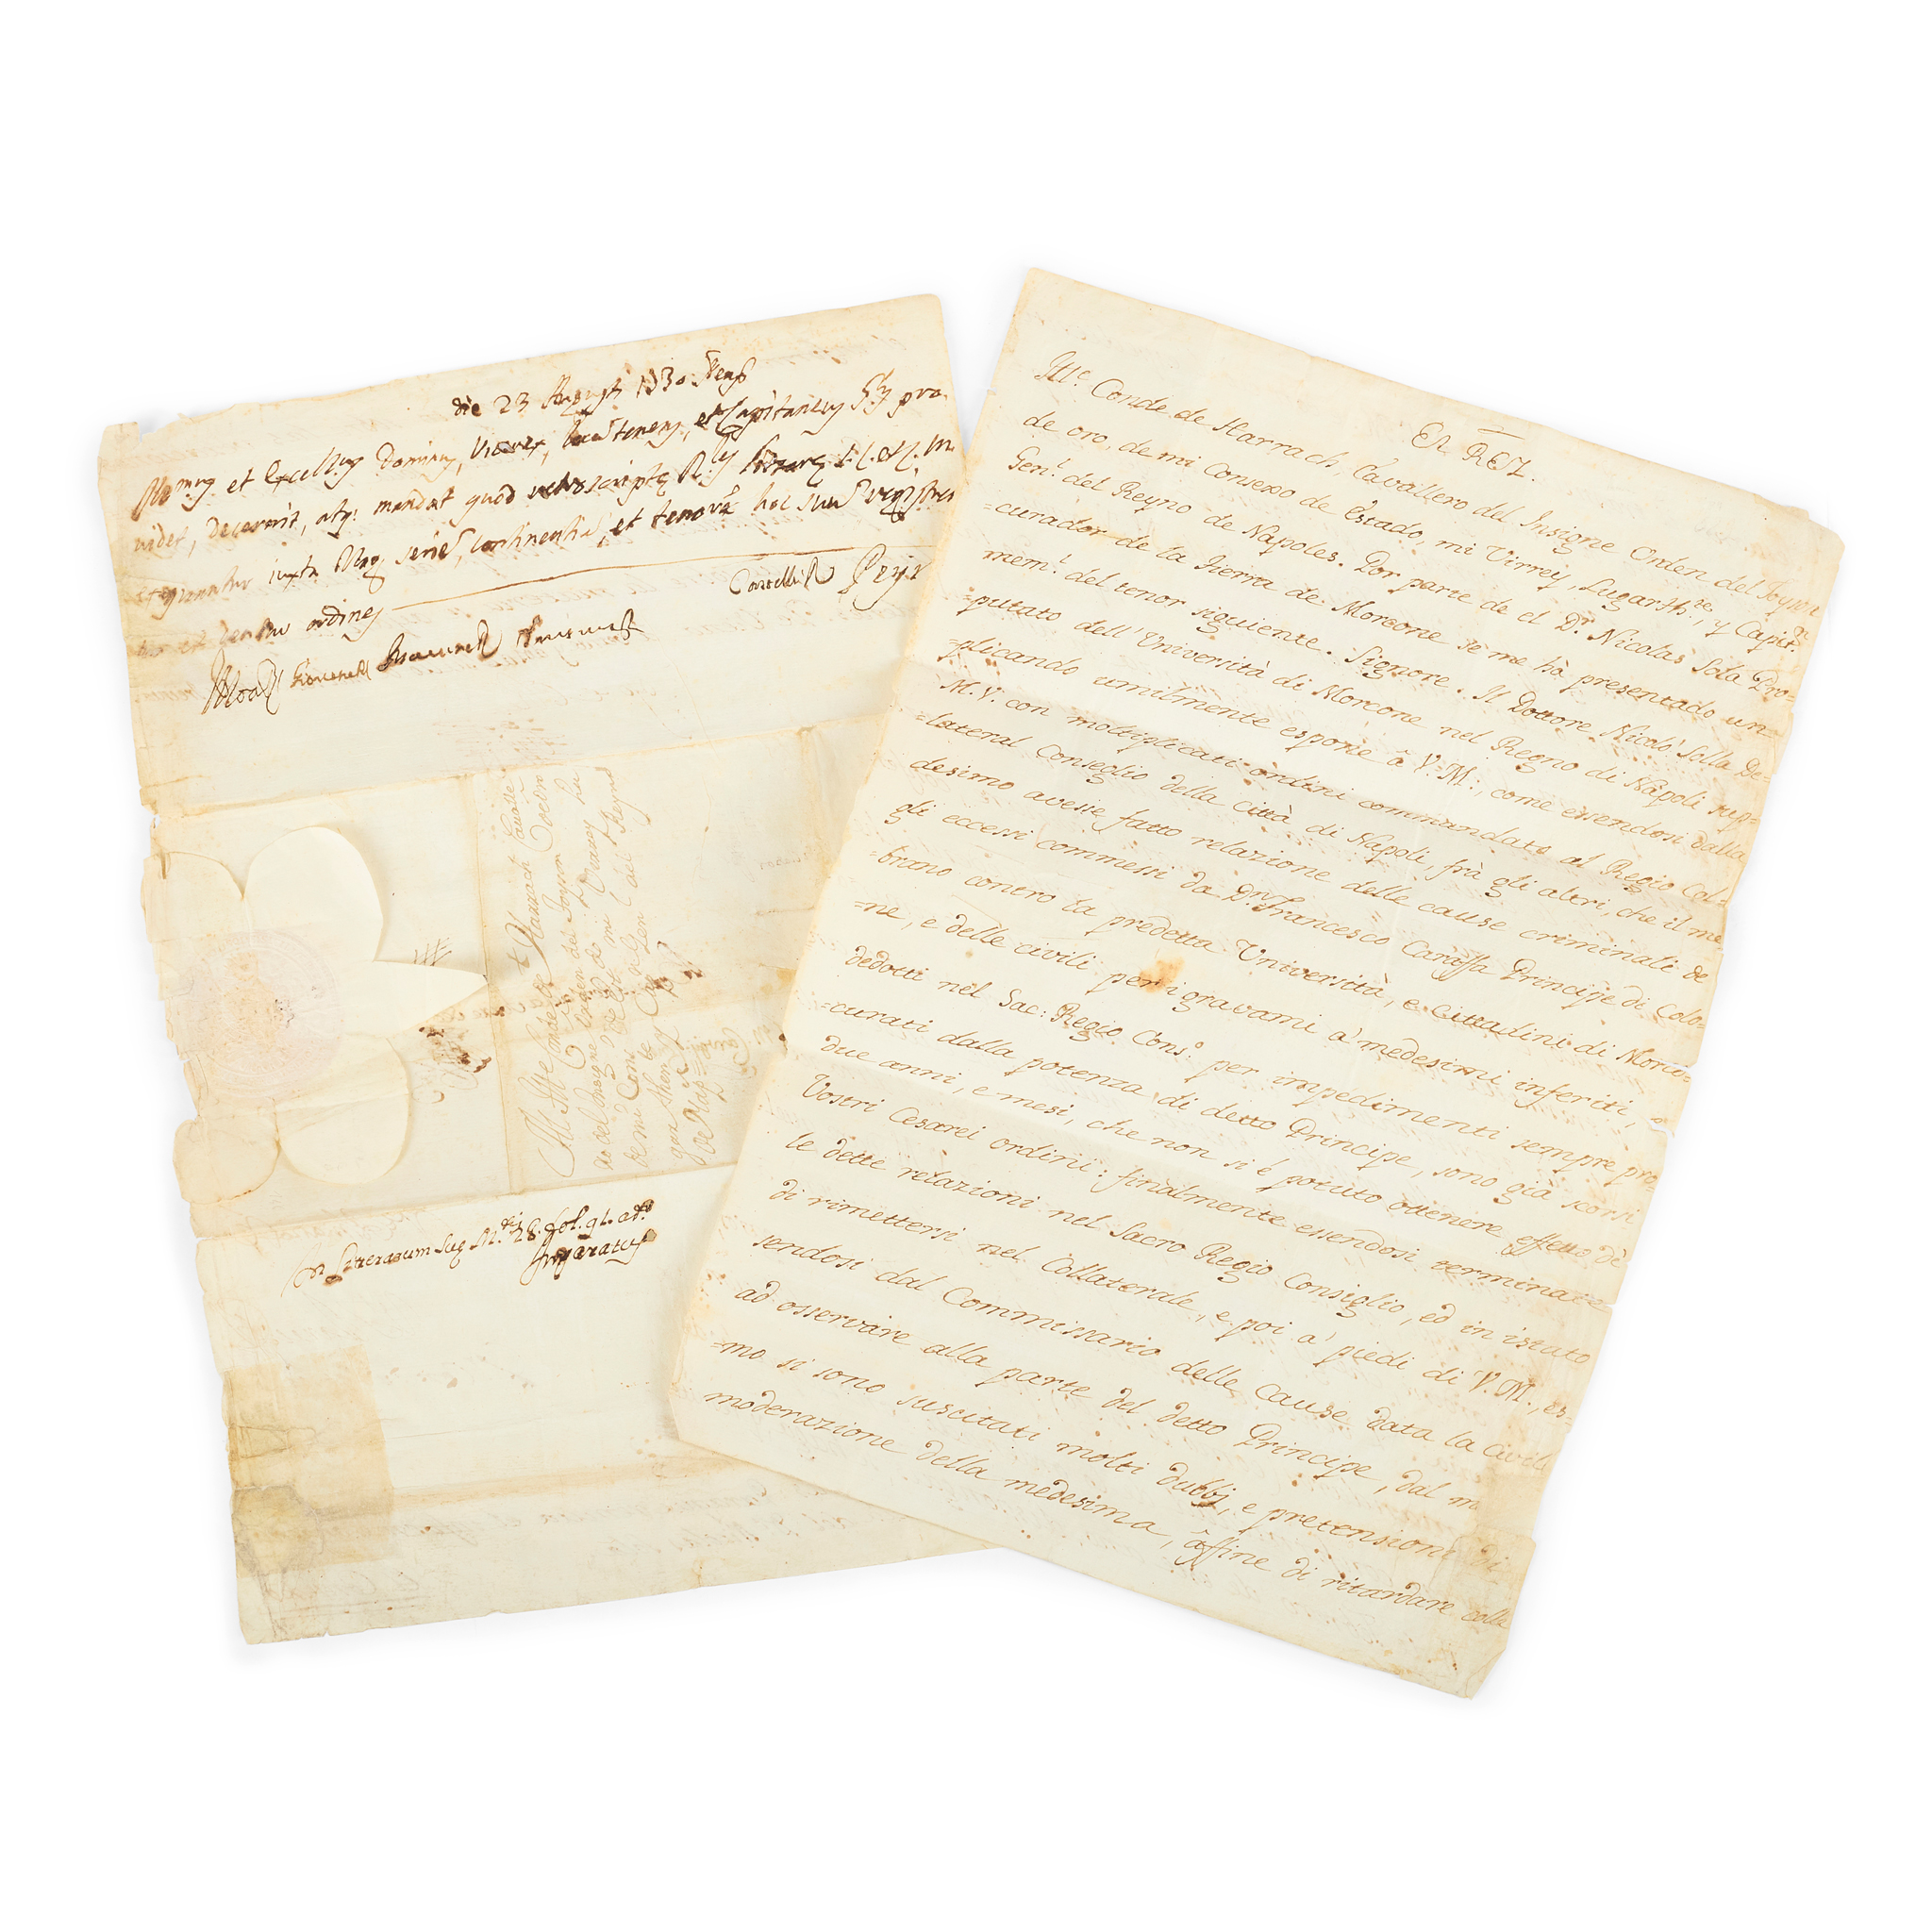 die 23 Augusti 1730 Neap
et Excellmus Dominus, Vicerex, locumtenens, et Capitaneus Glis pro
videt, decernit, atq: mandat quod retroscriptæ
iuxta seriem, continentiam, et tenorem
ordines
In Litterarum Suæ M.tis 28. fol. 91. ad.
Imparatus
Al Ille Conde de Harrach Cavalle
ro del Insigne Orden del Toyson de oro
de mi Cons.o de Estado mi Virrey Lu
gar theniente y Cap.n Gen.l del Reyno
de Nap.s
EL REY.
Ill.e Conde de Harrach, Cavallero del Insigne Orden del Toyson
de oro, de mi Consexo de Estado, mi Virrey, Lugarth.te, y Capit.n
Gen.l del Reyno de Napoles. Por parte de el D.r Nicolas Sola Pro=
=curador de la tierra de Morcone se me hà presentado un=
mem.l del tenor siguiente. Signore. Il Dottore Nicolò Solla De=
=putato dell'Università di Morcone nel Regno di Napoli sup=
=plicando umilmente espone â V.M:, come essendosi dalla
M.V. con moltiplicati ordini commandato al Regio Col=
=lateral Conseglio della città di Napoli, frà gli altri, che il me
desimo avesse fatto relazione delle cause criminali de
gli eccessi commessi da D.n Francesco Caraffa Principe di Colo=
=brano contro la predetta Università, e Cittadini di Morco=
=ne, e delle civili per i gravami a' medesimi inferiti,
dedotti nel Sac: Regio Cons.o per impedimenti sempre pro=
=curati dalla potenza di detto Principe, sono già scorsi
due anni, e mesi, che non si è potuto ottenere effetto di
Vostri Cesarei ordini: finalmente essendosi terminate
le dette relazioni nel Sacro Regio Consiglio, ed in istato
di rimettersi nel Collaterale, e poi a' piedi di V.M., es=
sendosi dal Commissario delle Cause data la Civile
ad osservare alla parte del detto Principe, dal m
=mo si sono suscitati molti dubbj, e pretensioni di
moderazione della medesima, âffine di ritardare colla